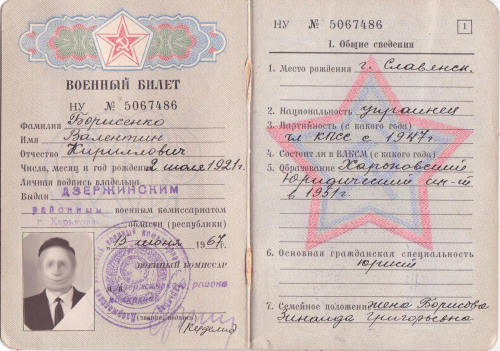 ВОЕННЫЙ БИЛЕТ
НУ № 5067486
Фамилия Борисенко
Имя Валентин
Отчество Кириллович
Число, месяц и год рождения 2 июля 1921 г.
Личная подпись владельца
Выдан ДЗЕРЖИНСКИМ
РАЙОННЫМ военным комиссариатом
г. Харькова области (республики)
13 июня 1967 г.
ВОЕННЫЙ КОМИССАР
Дзержинского района
(звание, подпись)
НУ № 5067486
1
I. Общие сведения
1. Место рождения г. Славянск.
2. Национальность украинец
3. Партийность (с какого года)
чл КПСС с 1947 г
4. Состоит ли в ВЛКСМ (с какого года)
5. Образование Харьковский
Юридический ин-т
в 1951 г
6. Основная гражданская специальность
юрист
7. Семейное положение жена Борисова
Зинаида Григорьевна